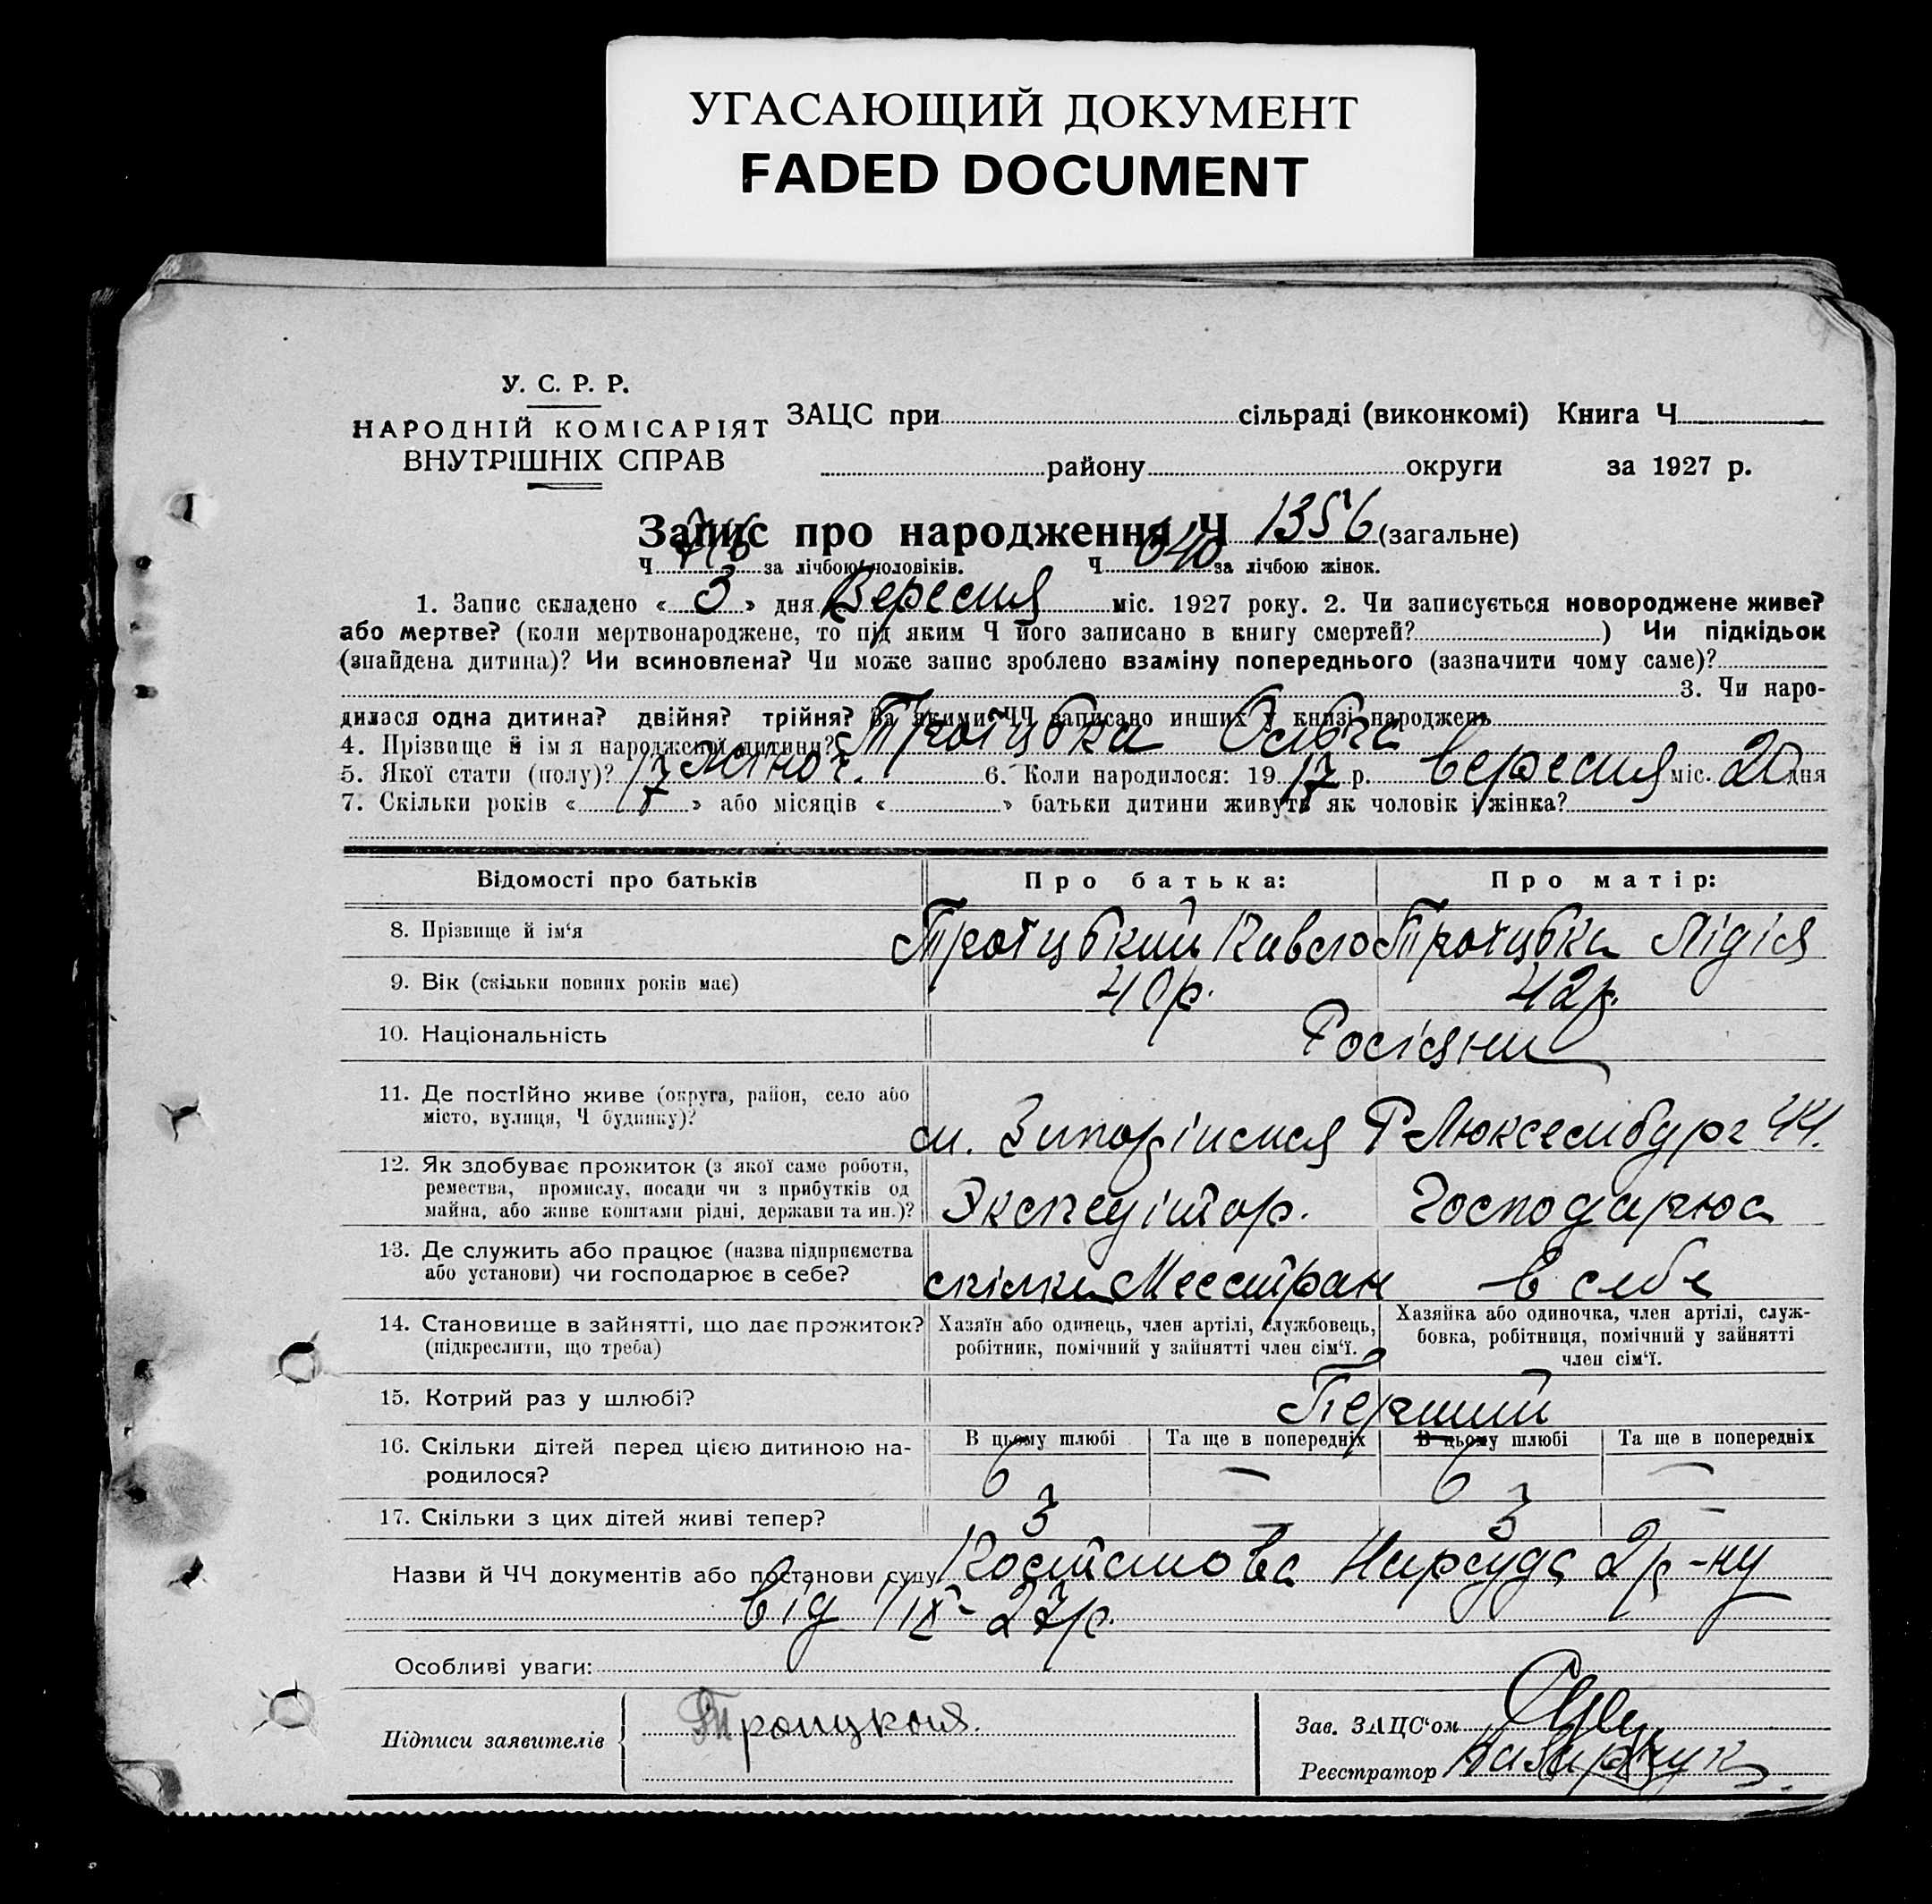 УГАСАЮЩИЙ ДОКУМЕНТ
FADED DOCUMENT
У. С. Р. Р.
НАРОДНІЙ КОМІСАРІЯТ
ВНУТРІШНІХ СПРАВ
ЗАЦС при сільраді (виконкомі) Книга Ч
району округи за 1927 р.
Запис про народження Ч 1356 (загальне)
Ч 716 за лічбою чоловіків. Ч 640 за лічбою жінок.
1. Запис складено « 3 » дня Вересня міс. 1927 року. 2. Чи записується новороджене живе?
або мертве? (коли мертвонароджене, то під яким Ч його записано в книгу смертей? ) Чи підкідьок
(знайдена дитина)? Чи всиновлена? Чи може запис зроблено взаміну попереднього (зазначити чому саме)?
3. Чи наро-
дилася одна дитина? двійня? трійня? За якими ЧЧ записано инших у книзі народжень
4. Прізвище й ім я народженої дитини? Троїцька Ольга
5. Якої стати (полу)? жіноч. 6. Коли народилося: 19 17 р. вересня міс. 20 дня
7. Скільки років « 17 » або місяців « » батьки дитини живуть як чоловік і жінка?
Відомості про батьків Про батька: Про матір:
8. Прізвище й ім‘я Троїцький Павло Троїцька Лідія
9. Вік (скільки повних років має) 40р. 42р.
10. Національність Росіяни
11. Де постійно живе (округа, район, село або
місто, вулиця, Ч будинку)?
м. Запоріжжя Р Люксембург 44.
12. Як здобуває прожиток (з якої саме роботи,
ремества, промислу, посади чи з прибутків од
майна, або живе коштами рідні, держави та ин.)?
Экспедітор. Господарює
13. Де служить або працює (назва підприємства
або установи) чи господарює в себе?
спілка Месстран в себе
14. Становище в зайнятті, що дає прожиток?
(підкреслити, що треба)
Хазяїн або одинець, член артілі, службовець,
робітник, помічний у зайнятті член сім‘ї.
Хазяйка або одиночка, член артілі, служ-
бовка, робітниця, помічний у зайнятті
член сім‘ї.
15. Котрий раз у шлюбі? Перший
16. Скільки дітей перед цією дитиною на-
родилося?
В цьому шлюбі Та ще в попередніх В цьому шлюбі Та ще в попередніх
6 — 6 —
17. Скільки з цих дітей живі тепер? 3 — 3 —
Назви й ЧЧ документів або постанови суду Постанова Нарсуда 2 р-ну
від 1/IX-27р.
Особливі уваги:
Підписи заявителів Троицкая.
Зав. ЗАЦС‘ом
Реєстратор